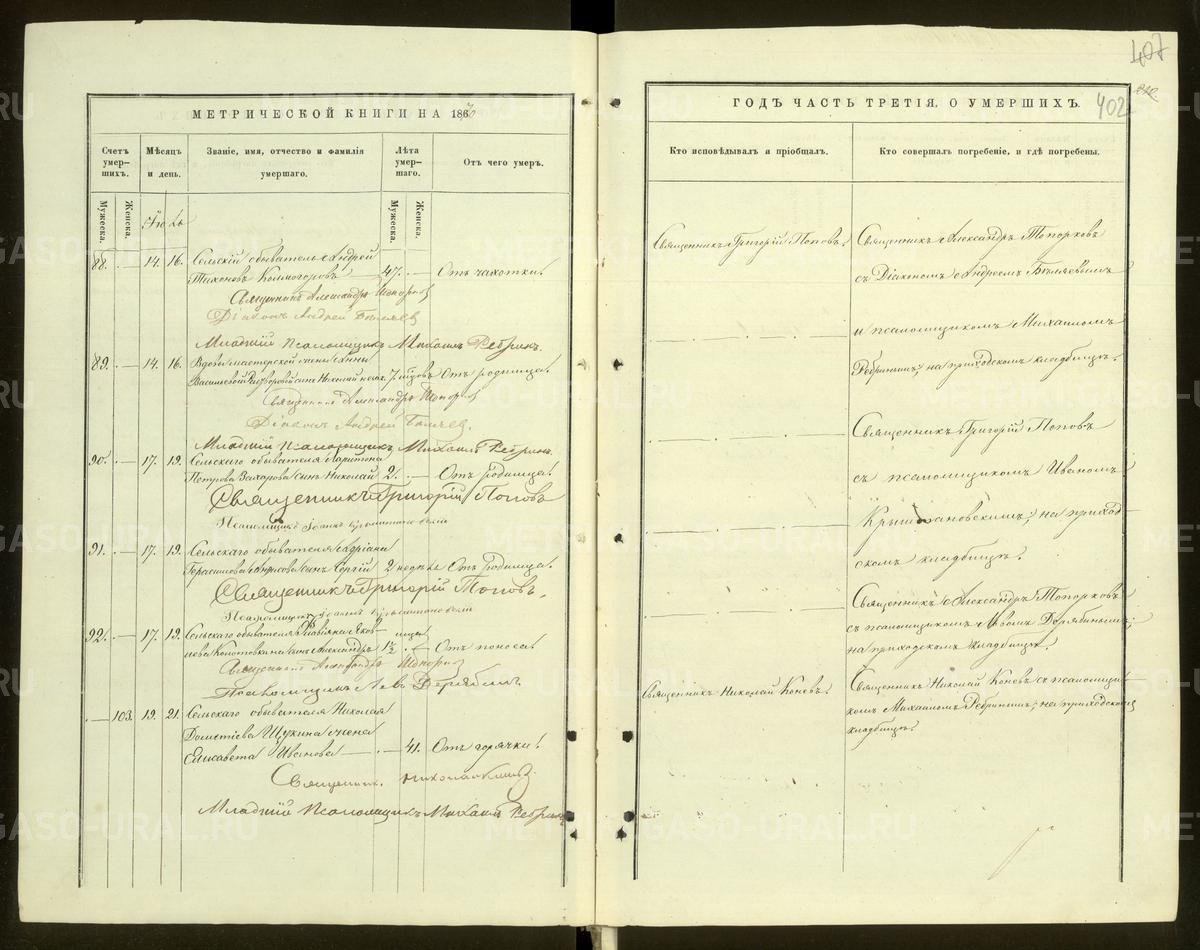 407
МЕТРИЧЕСКОЙ КНИГИ НА 1870
Счетъ умер-шихъ.
Мѣсяцъ и день.
Званіе, имя, отчество и фамилія умершаго.
Лѣта умер-шаго.
Отъ чего умеръ.
Мужеска. Женска.
Мужеска. Женска.
Іюль
88. — 14. 16. Сельскій обыватель Андрей
Тихоновъ Колмогоровъ 47. — Отъ чахотки.
Священникъ Александръ Топорковъ
Діаконъ Андрей Бѣляевъ
Младшій Псаломщикъ Михаилъ Ребринъ.
89. — 14. 16. Вдовы мастерской жены Анны
Васильевой сынъ Николай Отъ родимца.
Священникъ Александръ Топорковъ
Діаконъ Андрей Бѣляевъ.
Младшій Псаломщикъ Михаилъ Ребринъ.
90. — 17. 19. Сельскаго обывателя Харитона
Петрова Захарова сынъ Николай 2. — Отъ Родимца.
Священникъ Григорій Поповъ
Псаломщикъ Іоаннъ
91. — 17. 19. Сельскаго обывателя Адріана
Герасимова сынъ Сергій 2 недѣли Отъ Родимца.
Священникъ Григорій Поповъ.
Псаломщикъ Іоаннъ
92. — 17. 19. Сельскаго обывателя Флавіяна Яков-
лева сынъ Александръ 1½ — Отъ поноса.
Священникъ Александръ Топорковъ
Псаломщикъ Левъ Дерябинъ
— 103. 19. 21. Сельскаго обывателя Николая
Дометіева Щукина жена
Елисавета Иванова — 41. Отъ горячки.
Священникъ Николай Коневъ.
Младшій Псаломщикъ Михаилъ Ребринъ
ГОДЪ ЧАСТЬ ТРЕТІЯ, О УМЕРШИХЪ.
402
Кто исповѣдывалъ и пріобщалъ.
Кто совершалъ погребеніе, и гдѣ погребены.
Священникъ Григорій Поповъ.
Священникъ Александръ Топорковъ
съ Діакономъ Андреемъ Бѣляевымъ
и псаломщикомъ Михаиломъ
Ребринымъ, на приходскомъ кладбищѣ.
Священникъ Григорій Поповъ
съ псаломщикомъ Иваномъ
Крыжановскимъ, на приход-
скомъ кладбищѣ.
Священникъ Александръ Топорковъ
съ псаломщикомъ Львомъ Дерябинымъ,
на приходскомъ кладбищѣ.
Священникъ Николай Коневъ.
Священникъ Николай Коневъ съ псаломщи-
комъ Михаиломъ Ребринымъ, на приходскомъ
кладбищѣ.